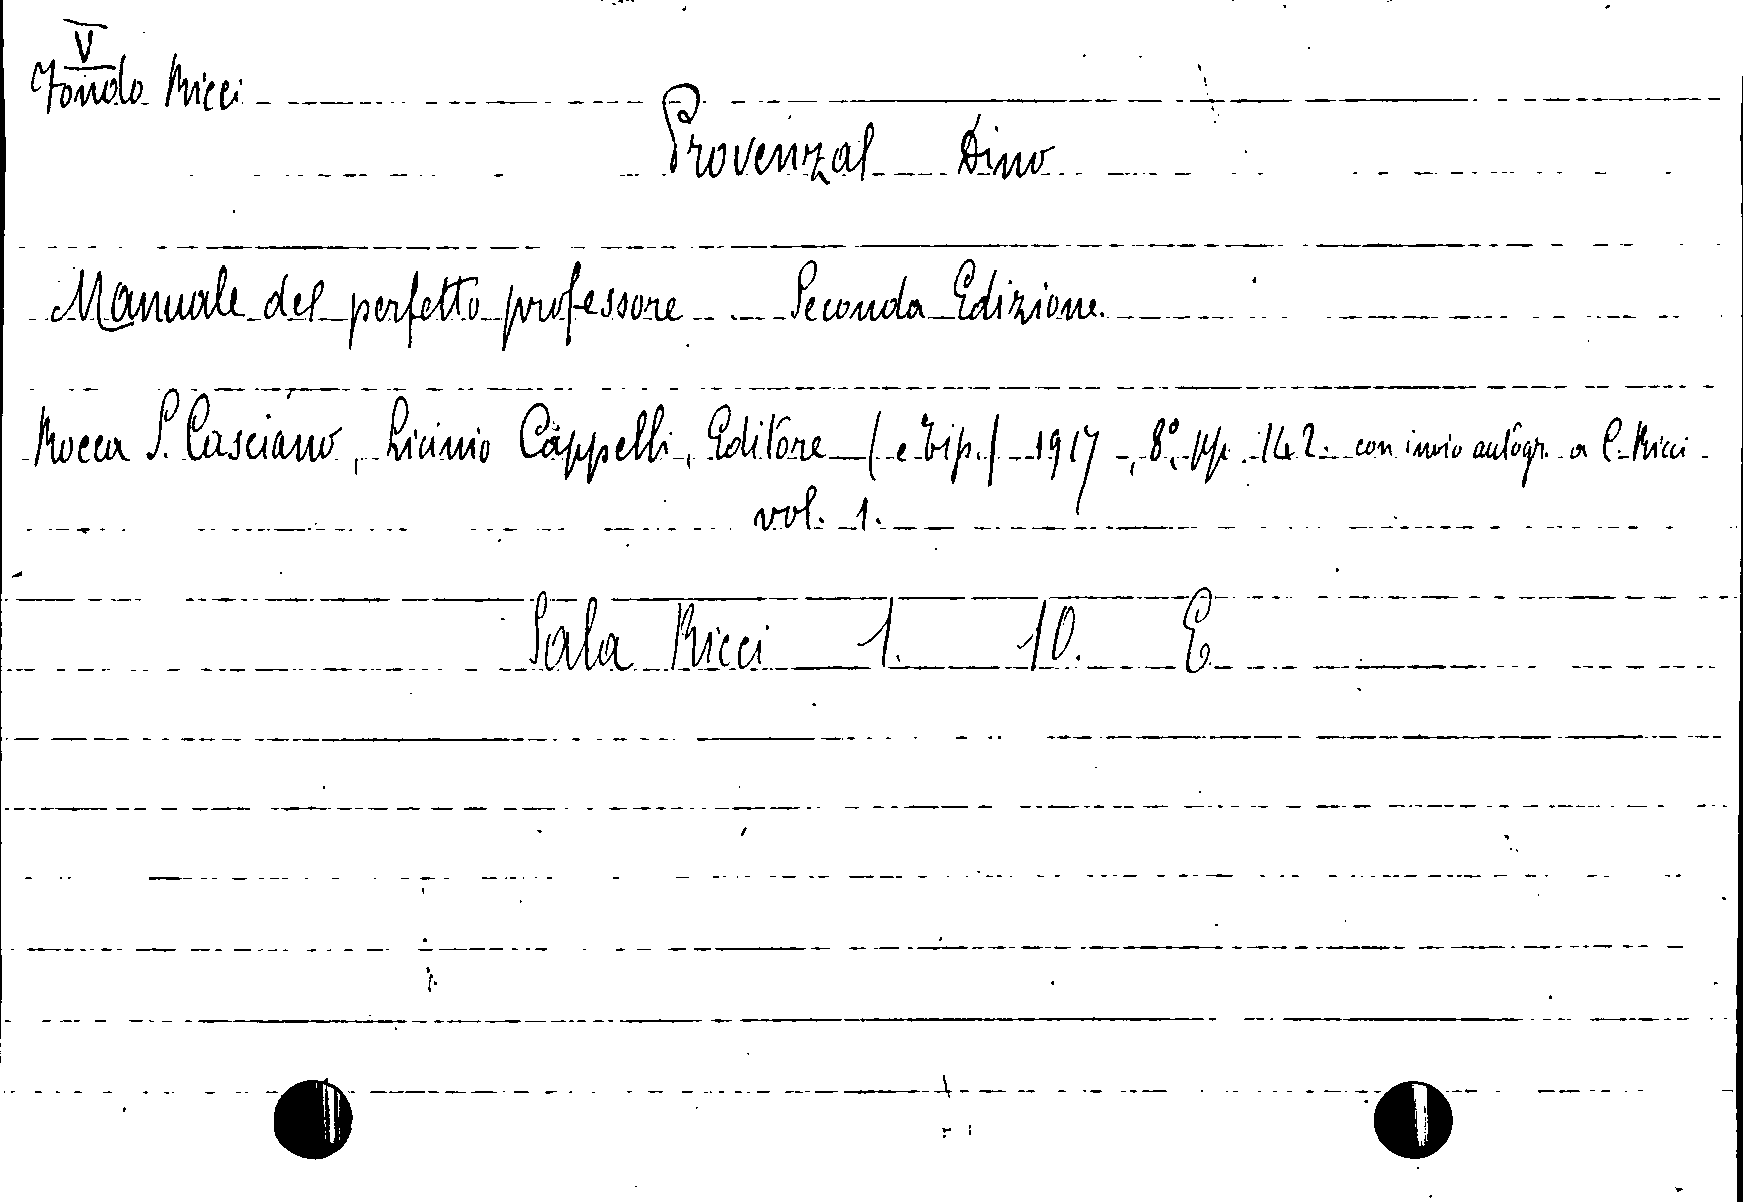 V
Fondo Ricci
Provenzal Dino
Manuale del perfetto professore Seconda Edizione.
Rocca S. Casciano, Licinio Cappelli, Editore (e tip.) 1917, 8°, pp. 142. con invio autogr. a C. Ricci
vol. 1.
Sala Ricci 1. 10. E